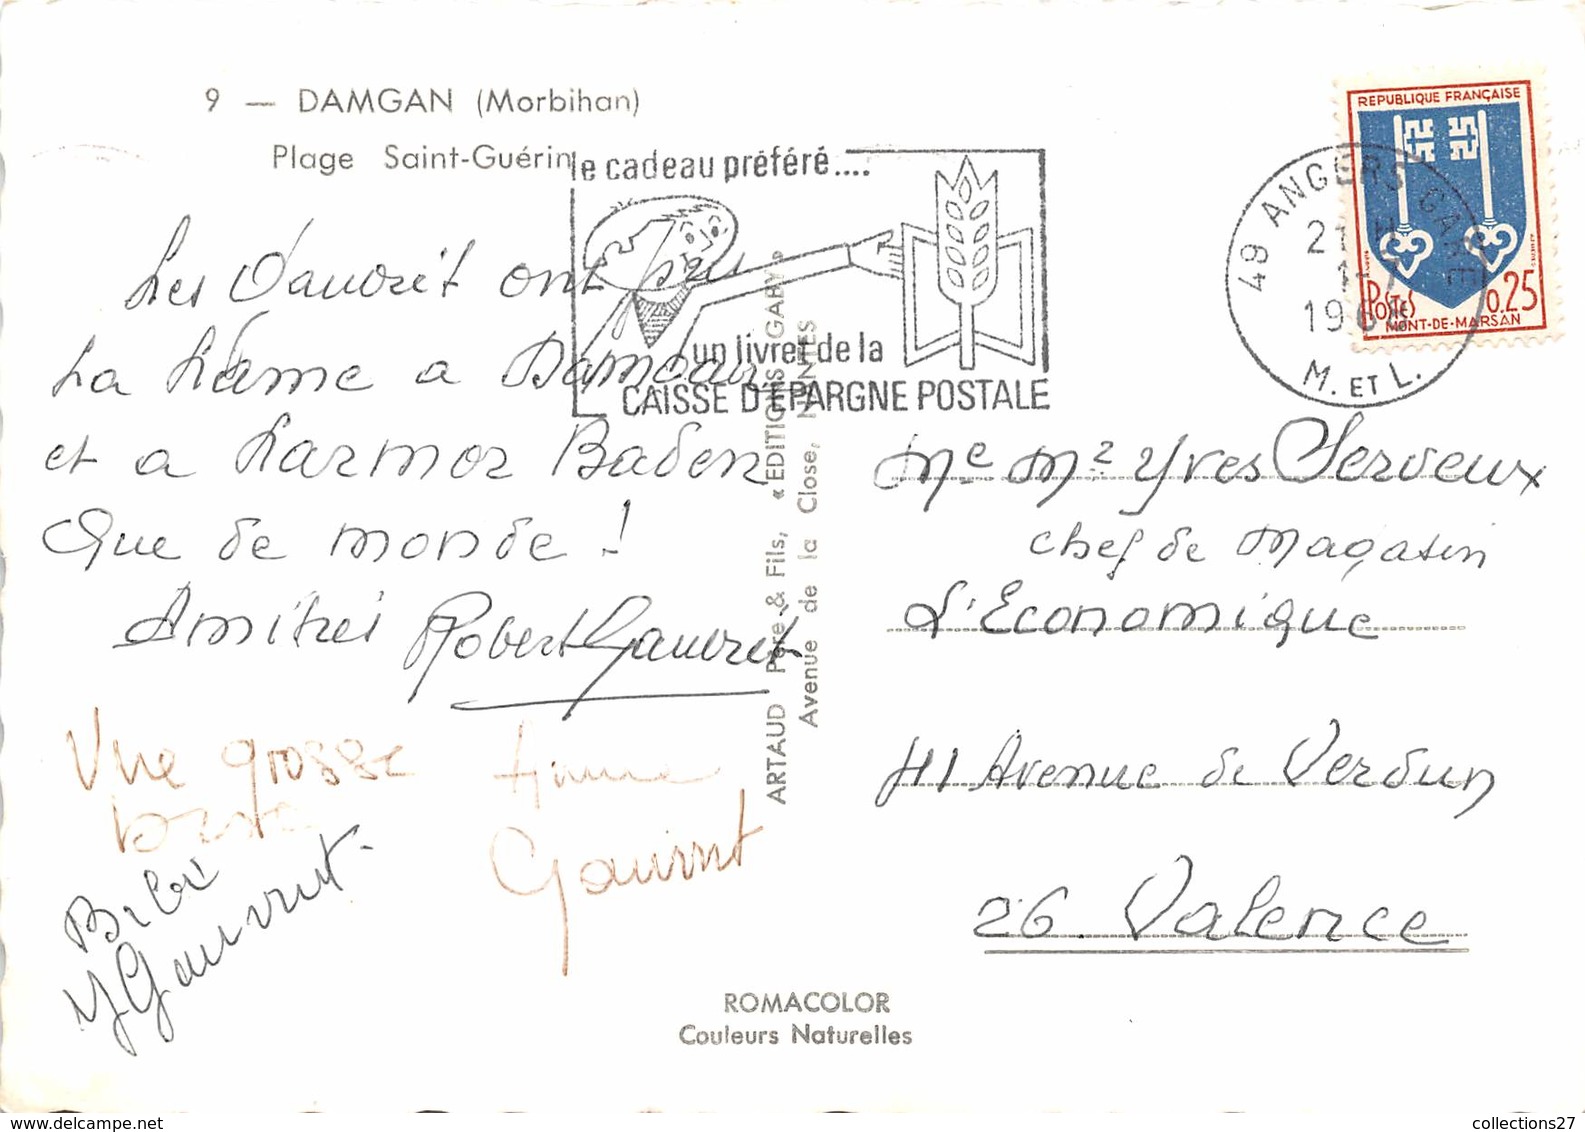 9 — DAMGAN (Morbihan)
Plage Saint-Guérin
le cadeau préféré....
un livret de la
CAISSE D'EPARGNE POSTALE
REPUBLIQUE FRANÇAISE
POSTES 0,25
MONT-DE-MARSAN
49 ANGERS GARE
21 H
1-7
196
M. ET L.
Les ont pris
La a Damgan
et a Larmor Baden
Que de monde !
Amitiés Robert Gauvrit
Une grosse
bise
Gauvrit
Gauvrit
ARTAUD Père & Fils, « EDITIONS GABY »
Avenue de la Close, NANTES
Me Mr Yves Serveux
chef de Magasin
L'Economique
41 Avenue de Verdun
26. Valence
ROMACOLOR
Couleurs Naturelles
collections27